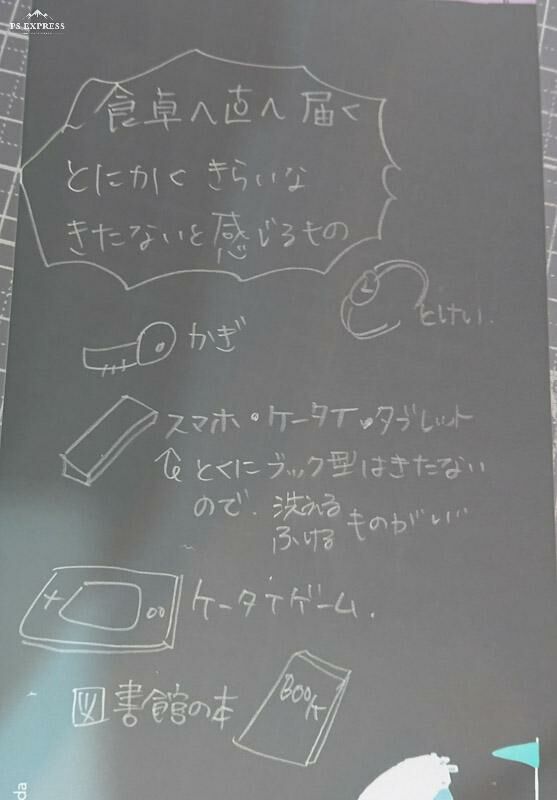 PS.EXPRESS
食卓へ直へ届く
とにかく きらいな
きたないと感じるもの
とけい.
かぎ
スマホ・ケータイ・タブレット
とくにブック型はきたない
ので. 洗える
ふける ものがいい
ケータイゲーム.
図書館の本
BOOK
da